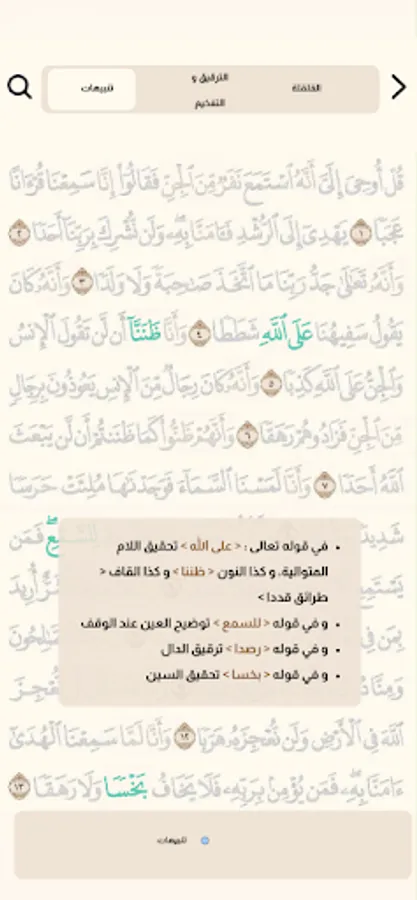 القلقلة
الترقيق و التفخيم
تنبيهات
قُلْ أُوحِىَ إِلَىَّ أَنَّهُ ٱسْتَمَعَ نَفَرٌ مِّنَ ٱلْجِنِّ فَقَالُوٓا۟ إِنَّا سَمِعْنَا قُرْءَانًا
عَجَبًا ١ يَهْدِىٓ إِلَى ٱلرُّشْدِ فَـَٔامَنَّا بِهِۦ وَلَن نُّشْرِكَ بِرَبِّنَآ أَحَدًا ٢
وَأَنَّهُۥ تَعَـٰلَىٰ جَدُّ رَبِّنَا مَا ٱتَّخَذَ صَـٰحِبَةً وَلَا وَلَدًا ٣ وَأَنَّهُۥ كَانَ
يَقُولُ سَفِيهُنَا عَلَى ٱللَّهِ شَطَطًا ٤ وَأَنَّا ظَنَنَّآ أَن لَّن تَقُولَ ٱلْإِنسُ
وَٱلْجِنُّ عَلَى ٱللَّهِ كَذِبًا ٥ وَأَنَّهُۥ كَانَ رِجَالٌ مِّنَ ٱلْإِنسِ يَعُوذُونَ بِرِجَالٍ
مِّنَ ٱلْجِنِّ فَزَادُوهُمْ رَهَقًا ٦ وَأَنَّهُمْ ظَنُّوا۟ كَمَا ظَنَنتُمْ أَن لَّن يَبْعَثَ
ٱللَّهُ أَحَدًا ٧ وَأَنَّا لَمَسْنَا ٱلسَّمَآءَ فَوَجَدْنَـٰهَا مُلِئَتْ حَرَسًا
فَمَن
• في قوله تعالى : < على الله > تحقيق اللام
المتوالية، و كذا النون < ظننا > و كذا القاف <
طرائق قددا >
• و في قوله < للسمع > توضيح العين عند الوقف
• و في قوله < رصدا > ترقيق الدال
• و في قوله < بخسا > تحقيق السين
ٱللَّهَ فِى ٱلْأَرْضِ وَلَن نُّعْجِزَهُۥ هَرَبًا ١٢ وَأَنَّا لَمَّا سَمِعْنَا ٱلْهُدَىٰٓ
ءَامَنَّا بِهِۦ فَمَن يُؤْمِنۢ بِرَبِّهِۦ فَلَا يَخَافُ بَخْسًا وَلَا رَهَقًا ١٣
تنبيهات